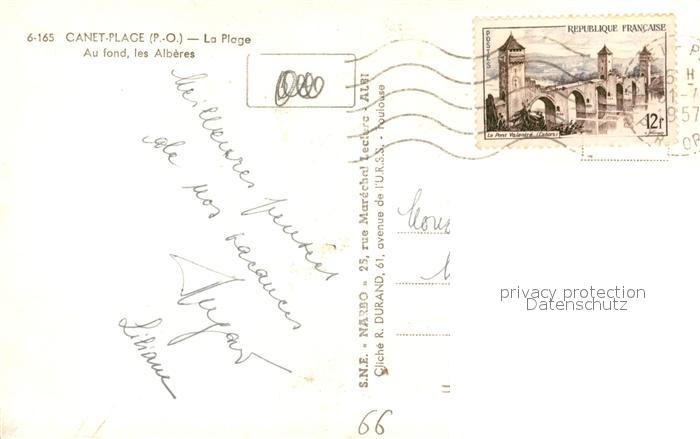 6-165 CANET-PLAGE (P.-O.) — La Plage
Au fond, les Albères
Meilleures pensées
de nos vacances
Liliane
S.N.E. = NARBO = 25, rue Maréchal Leclerc - ALBI
Cliché R. DURAND, 61, avenue de l'U.R.S.S. - Toulouse
POSTES
REPUBLIQUE FRANÇAISE
Le Pont Valentré (Cahors)
12f
1957
privacy protection
Datenschutz
66